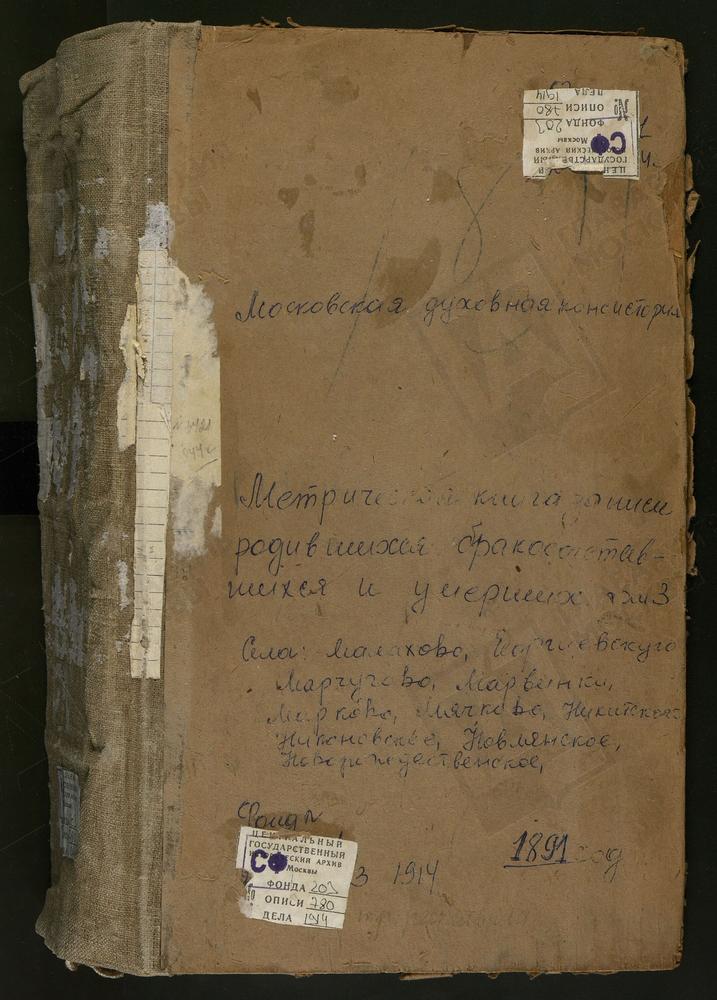 ЦЕН
ГОСУДАРСТВЕННЫЙ
ИЧЕСКИЙ АРХИВ
СФ Москвы
ФОНДА 203
№ ОПИСИ 780
ДЕЛА 1914
Московская духовная консистория
Метрическая книга записи
родившихся бракосочетав-
шихся и умерших том 3
Села: Малахово, Георгиевскуго
Марчугово, Марвинки,
Марково, Мячково, Никитское
Никоновское, Новлянское,
Новорождественское,
Фонд №
1891 год
3 1914
ЦЕНТРАЛЬНЫЙ
ГОСУДАРСТВЕННЫЙ
ИЧЕСКИЙ АРХИВ
СФ Москвы
ФОНДА 203
№ ОПИСИ 780
ДЕЛА 1914